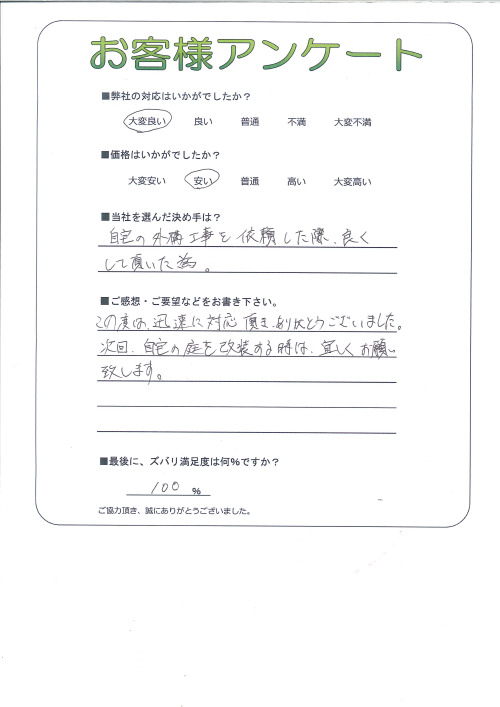 お客様アンケート
■弊社の対応はいかがでしたか？
大変良い 良い 普通 不満 大変不満
■価格はいかがでしたか？
大変安い 安い 普通 高い 大変高い
■当社を選んだ決め手は？
自宅の外構工事を依頼した際、良く
して頂いた為。
■ご感想・ご要望などをお書き下さい。
この度は、迅速に対応頂き、ありがとうございました。
次回、自宅の庭を改装する時は、宜しくお願い
致します。
■最後に、ズバリ満足度は何％ですか？
100 ％
ご協力頂き、誠にありがとうございました。